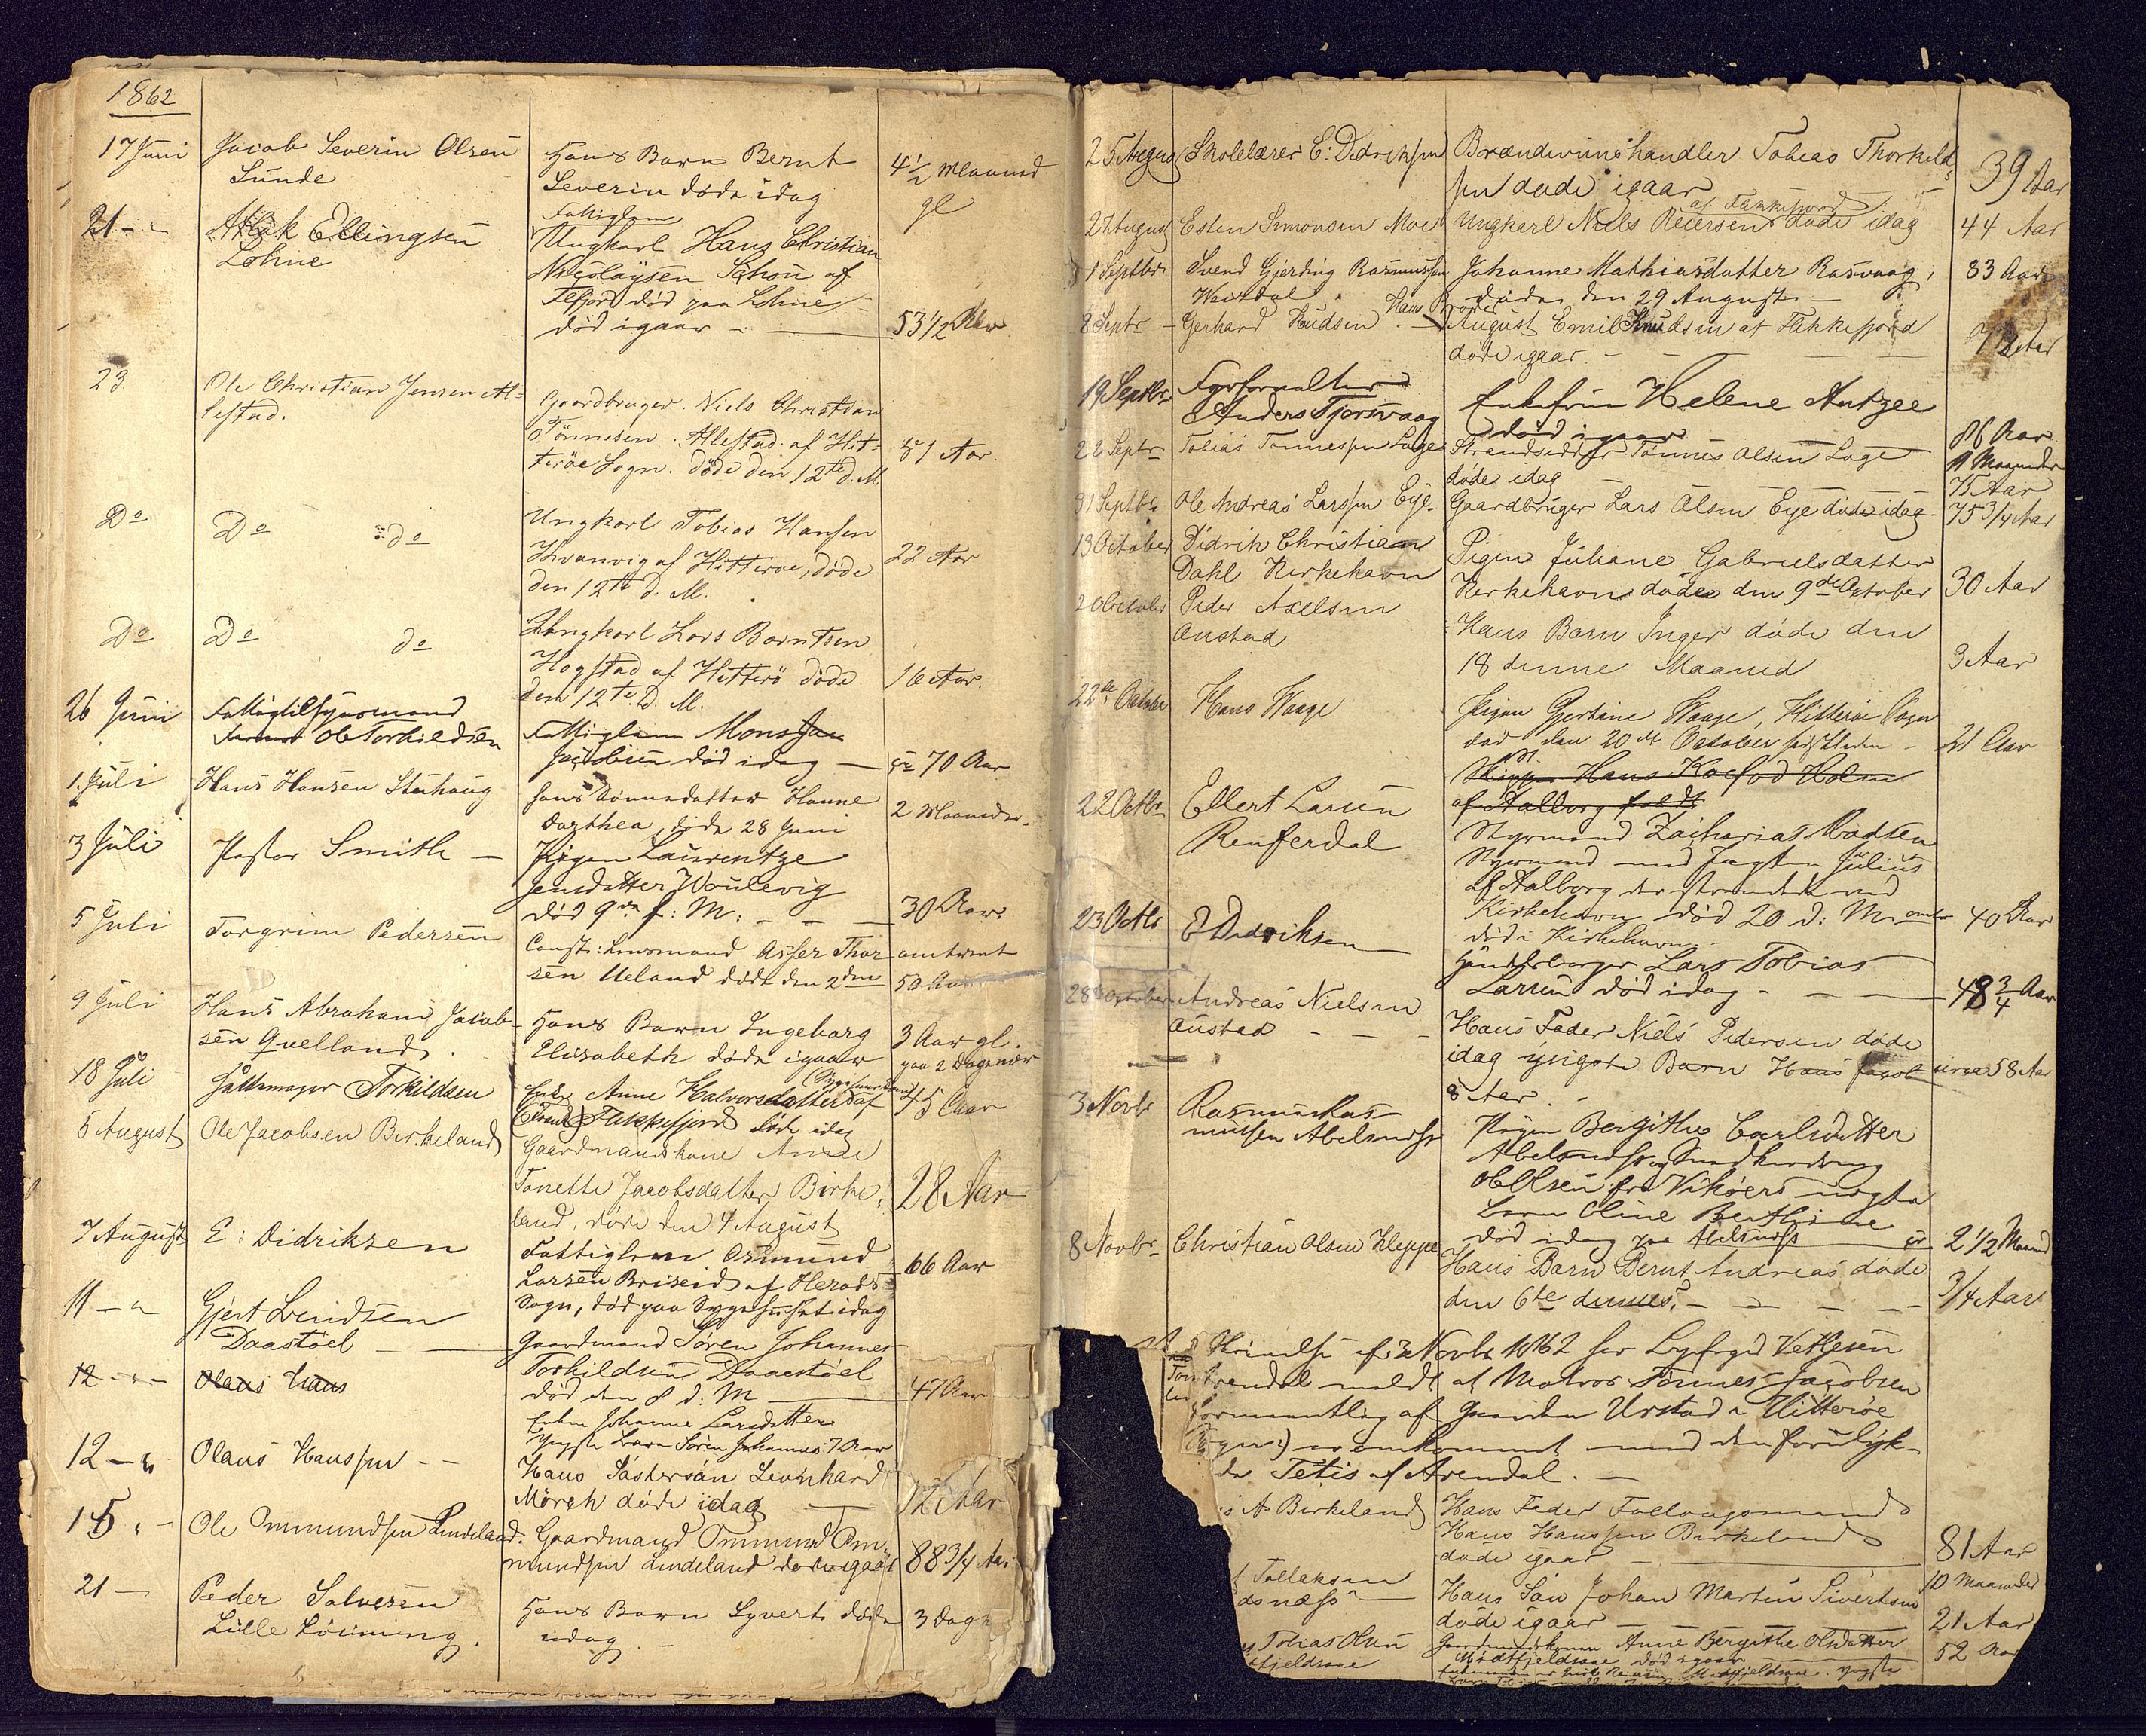 1862
17 Juni Jacob Severin Olsen Hans Barn Bernt 4 1/2 Maaned
Lunde Severin döde idag gl
21 - " Ellingsen Fattiglem
Lohne Ungkarl Hans Christian
Nicolaysen Schou af
död paa Lohne
död igaar - 53 1/2 Aar
23 Ole Christian Jensen Al-
lestad. Gaardbruger Niels Christian
Tönnesen Allestad af Hit-
teröe Sogn. döde den 12te d. M. 51 Aar
Do Do do Ungkarl Tobias Hansen
Kvanvig af Hitteroe, döde 22 Aar
den 12te d. M.
Do Do do Ungkarl Lars Barntsen
Hogstad af Hitterö döde 16 Aar.
den 12te D. M.
26 Juni
Ole Torkildsen Fattiglem Mons
Jacobsen död idag - 70 Aar
1. Juli Hans Hansen Stuhaug Hans Hanne
Dorthea, döde 28 Juni 2 Maaneder
3 Juli Pastor Smith - Pigen Laurentze
Jensdatter Woulevig
död 9de f: M: - - 30 Aar
5 Juli Torgrim Pedersen Const: Lensmand Asser Thor- omtrent
sen Ueland död den 2den 50 Aar
9 Juli Hans Abraham Jacob-
sen Quelland. Hans Barn Ingeborg 3 Aar gl.
Elisabeth döde igaar paa 2 Dage nær
18 Juli Torkildsen Enke Anne Halvorsdatter af 45 Aar
Flekkefjord döde idag
5 August Ole Jacobsen Birkeland Gaardmandskone Anne
Tonette Jacobsdatter Birke- 28 Aar
land, döde den 4 August
7 August E: Didriksen Fattiglem Osmund
Larsen Briseid af Herads 66 Aar
Sogn, död paa Sygehuset idag
11 - " Gjert Svendsen
Daastöel - Gaardmand Sören Johannes
Torkildsen Daastöel
död den 8 d: M 47 Aar
12 - " - Olaus Hans Enken Johanne Larsdatter
Yngste Barn Sören Johannes 7 Aar
12 - " Olaus Hanssen - - Hans Söstersön Leonhard
Mörch döde idag 12 Aar
15 " - Ole Ommundsen Lindeland. Gaardmand Ommund Om-
mundsen Lindeland döde igaar 88 3/4 Aar
21 - Peder Salvesen
Lille Löining. Hans Barn Syvert döde 3 Dage
idag
25 August Skolelærer E: Didriksen Brændeviinshandler Tobias Thorkild-
sen döde igaar 39 Aar
af Flekkefjord
27 August Esten Simonsen Moe Ungkarl Niels Reiersen döde idag 44 Aar
1 Septbr Svend Gjerding Rasmussen Johanne Mathiasdatter Rasvaag, 83 Aar
döde den 29 August -
8 Septr - Gerhard Knudsen. - Hans Broder August Emil Knudsen af Flekkefjord
döde igaar - - Aar
19 Septbr Fyrforvalter
Anders Tjorsvaag Enkefru Helene Antzee
död igaar 86 Aar
11 Maaneder
22 Septr Tobias Tonnessen Loge Strandsidder Tönnes Olsen Loge
döde idag 75 Aar
31 Septbr Ole Andreas Larssen Eye. Gaardbruger Lars Olsen Eye döde idag. 75 3/4 Aar
13 October Didrik Christian Pigen Juliane Gabrielsdatter
Dahl Kirkehavn Kirkehavn döde den 9de October 30 Aar
20 October Peder Axelsen
Anstad Hans Barn Inger döde den
18 denne Maaned 3 Aar
22de October Hans Waage Pigen Gertine Waage, Hitteröe Sogn
död den 20de October 21 Aar
Skipper Hans Koefod Holm
af Aalborg
22 Octbr Ellert Larsen
Renferdal Styrmand Zacharias Madsen
Styrmand med Jagten Julius
af Aalborg der strandede ved
Kirkehavn död 20 d: M 40 Aar
död i Kirkehavn -
23 Octbr E Didriksen - Handelsborger Lars Tobias
Larsen död idag - - 48 3/4 Aar
28 October Andreas Nielsen
Austad - - - Hans Fader Niels Pedersen döde
idag yngste Barn Hans Jacob circa 58 Aar
8 Aar.
3 Novbr Rasmus Ras-
mussen Abelsnæss Pigen Bergithe Carlsdatter
Abelsnæss og
Olsen fra Vikøers uægte
Barn Oline Berthine
död idag paa Abelsnæss 2 1/2 Maaned
8 Novbr Christian Olsen Kleppe Hans Barn Bernt Andreas döde
den 6te dennes. - - - - 3/4 Aar
Skrivelse af 3 Novbr 1862 har Byfoged Vettesen
Arendal meldt at Matros Tönnes Jacobsen
formentlig af Gaarden Urstad i Hitteröe
Sogn er omkommet med den forulyk-
kede Tetis af Arendal. -
s A Birkeland Hans Fader Follaugsmand
Hans Hanssen Birkeland
döde igaar - 81 Aar
Tollaksen 10 Maaneder
dsnæss - Hans Sön Johan Martin Sivertsen
döde igaar - 21 Aar
Tobias Olsen Gaardmandskonen Anne Bergithe Olsdatter
fjeldsaae Midtfjeldsaae död igaar 52 Aar